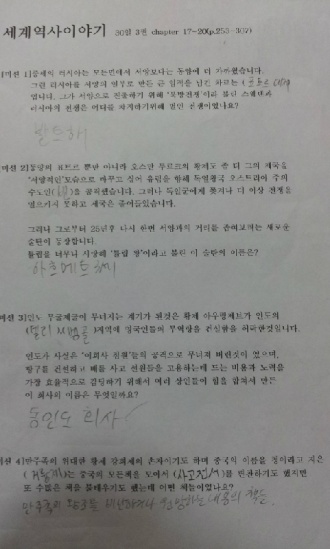 세계역사이야기 30일 3권 chapter 17~20(p.253~307)
미션 1]중세의 러시아는 모든면에서 서양보다는 동양에 더 가까웠습니다.
그런 러시아를 서양의 일부로 만든 금 업적을 남긴 차르는 (표트르 대제)
입니다. 그가 서양으로 진출하기 위해 "북방전쟁"이라 불린 스웨덴과
러시아의 전쟁은 어디를 차지하기위해 벌인 전쟁이었나요?
발트해
미션 2]동양의 표트르 뿐만 아니라 오스만 투르크의 황제도 좀 더 그의 제국을
"서양적인"모습으로 바꾸고 싶어 유럽을 향해 독일왕국 오스트리아 주의
수도인(빈)을 공격했습니다. 그러나 독일군에게 쫓겨나 더 이상 전쟁을
벌이지 못하고 제국은 줄어들었습니다.
그러나 그로부터 25년후 다시 한번 서양과의 거리를 좁혀보려는 새로운
술탄이 등장합니다.
튤립을 너무나 사랑해 "튤립 왕"이라고 불린 이 술탄의 이름은?
아흐메트 3세
미션 3]인도 무굴제국이 무너지는 계기가 된것은 황제 아우랑제브가 인도의
지역에 영국인들의 무역항을 건설함을 허락한것입니다.
인도가 사실은 "이회사 직원"들의 공격으로 무너져 버린것이 였으며,
항구를 건설하고 배를 사고 선원들을 고용하는데 드는 비용과 노력을
가장 효율적으로 감당하기 위해서 여러 상인들이 힘을 합쳐서 만든
이 회사의 이름은 무엇일까요?
동인도 회사
미션 4]만주족의 위대한 황제 강희제의 손자이기도 하며 중국의 이름을 청이라고 지은
(건륭제)는 중국의 모든책을 모아서 (사고전서)를 편찬하기도 했지만
또 수많은 책을 불태우기도 했는데 어떤 책들이었나요?
만주족의 왕조를 비난하거나 내용의 책들